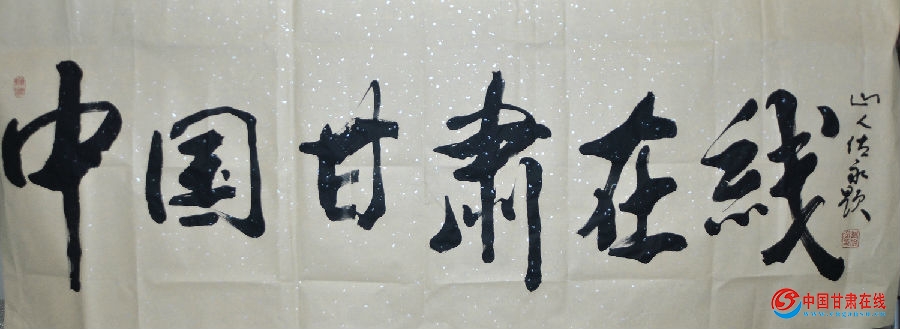 中国甘肃在线
山人佐永题
中国甘肃在线